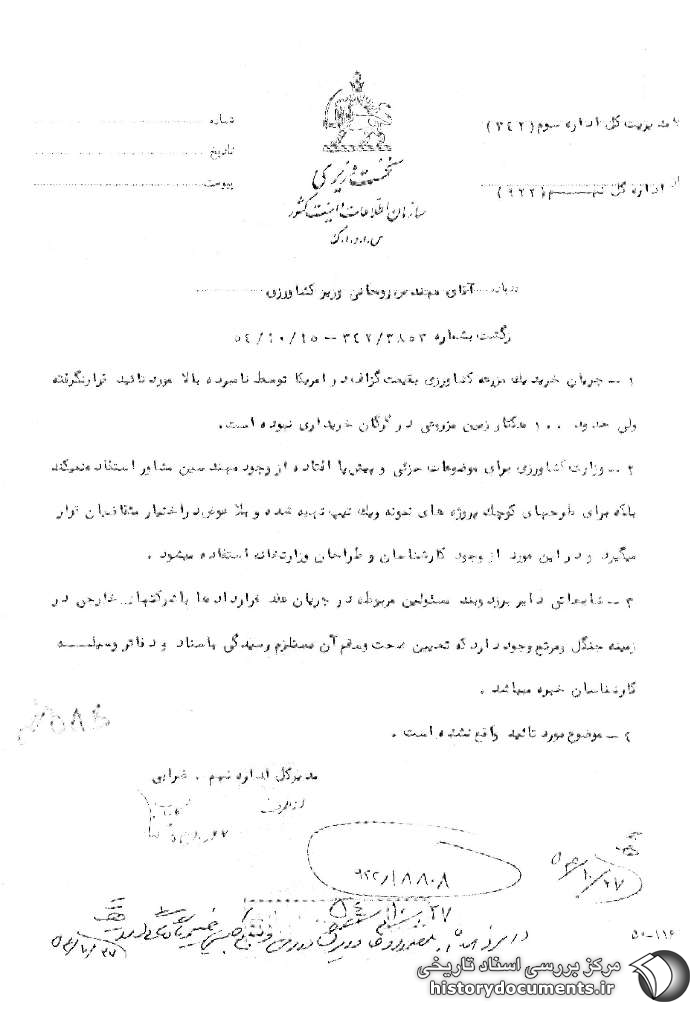 به مدیریت کل اداره سوم (۳۴۲)
شماره
از اداره کل نهم (۹۲۲)
تاریخ
پیوست
نخست وزیری
سازمان اطلاعات و امنیت کشور
س.ا.و.ا.ک
درباره آقای مهندس روحانی وزیر کشاورزی
بازگشت بشماره ۳۴۲/۳۸۵۳ -- ۵۴/۱۰/۱۵
۱ -- جریان خرید یک مزرعه کشاورزی بقیمت گزاف در امریکا توسط نامبرده بالا مورد تائید قرار نگرفته
ولی حدود ۱۰۰ هکتار زمین مزروعی در گرگان خریداری نموده است.
۲ -- وزارت کشاورزی برای موضوعات جزئی و پیش پا افتاده از وجود مهندسین مشاور استفاده نمیکند
بلکه برای طرحهای کوچک پروژه های نمونه ویک تیپ تهیه شده و بلا عوض در اختیار متقاضیان قرار
میگیرد و در این مورد از وجود کارشناسان و طراحان وزارتخانه استفاده میشود .
۳ -- شایعاتی دایر بر زد وبند مسئولین مربوطه در جریان عقد قرارداد ها با شرکتهای خارجی در
زمینه جنگل ومرتع وجود دارد که تعیین صحت وسقم آن مستلزم رسیدگی باسناد و دفاتر وسیله
کارشناسان خبره میباشد .
۴ -- موضوع مورد تائید واقع نشده است .
مدیرکل اداره نهم . ضرابی
از طرف
۹۲۲/۱۸۸۰۸
۵۴/۱۰/۲۷
۵۴/۱۰/۲۷
۵۴/۱۰/۲۷
۵۰-۱۱۶
مرکز بررسی اسناد تاریخی
historydocuments.ir